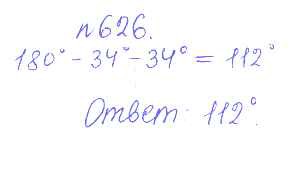 n 626.
180° - 34° - 34° = 112°
Ответ: 112°.